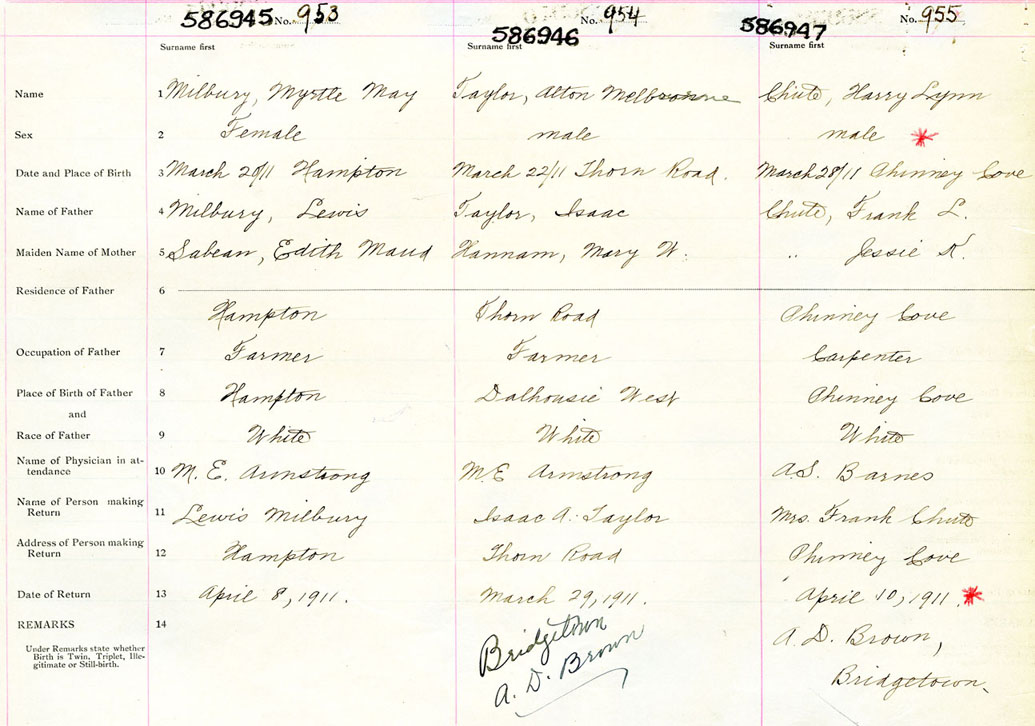 586945 No. 953 586946 No. 954 586947 No. 955
Surname first Surname first Surname first
Name 1 Milbury, Myrtle May Taylor, Alton Melbronne Chute, Harry Lynn
Sex 2 Female male male
Date and Place of Birth 3 March 20/11 Hampton March 22/11 Thorn Road. March 28/11 Phinney Cove
Name of Father 4 Milbury, Lewis Taylor, Isaac Chute, Frank L.
Maiden Name of Mother 5 Sabean, Edith Maud Hannam, Mary W. " Jessie K.
Residence of Father 6
Hampton Thorn Road Phinney Cove
Occupation of Father 7 Farmer Farmer Carpenter
Place of Birth of Father 8 Hampton Dalhousie West Phinney Cove
and
Race of Father 9 White White White
Name of Physician in at-
tendance 10 M. E. Armstrong M.E Armstrong A.S. Barnes
Name of Person making
Return 11 Lewis Milbury Isaac A. Taylor Mrs. Frank Chute
Address of Person making
Return 12 Hampton Thorn Road Phinney Cove
Date of Return 13 April 8, 1911. March 29, 1911. April 10, 1911.
REMARKS 14
Under Remarks state whether
Birth is Twin, Triplet, Ille-
gitimate or Still-birth.
Bridgetown
A. D. Brown
A. D. Brown,
Bridgetown.